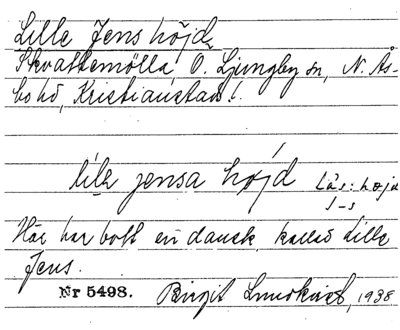 Lille Jens höjd
Skvattemölla Ö. Ljungby sn, N. Ås-
bo hd, Kristianstads l.
lilə jensa højd Läs: højd
Här har bott en dansk kallad Lille
Jens.
Nr 5498. Birgit Lundkvist, 1938